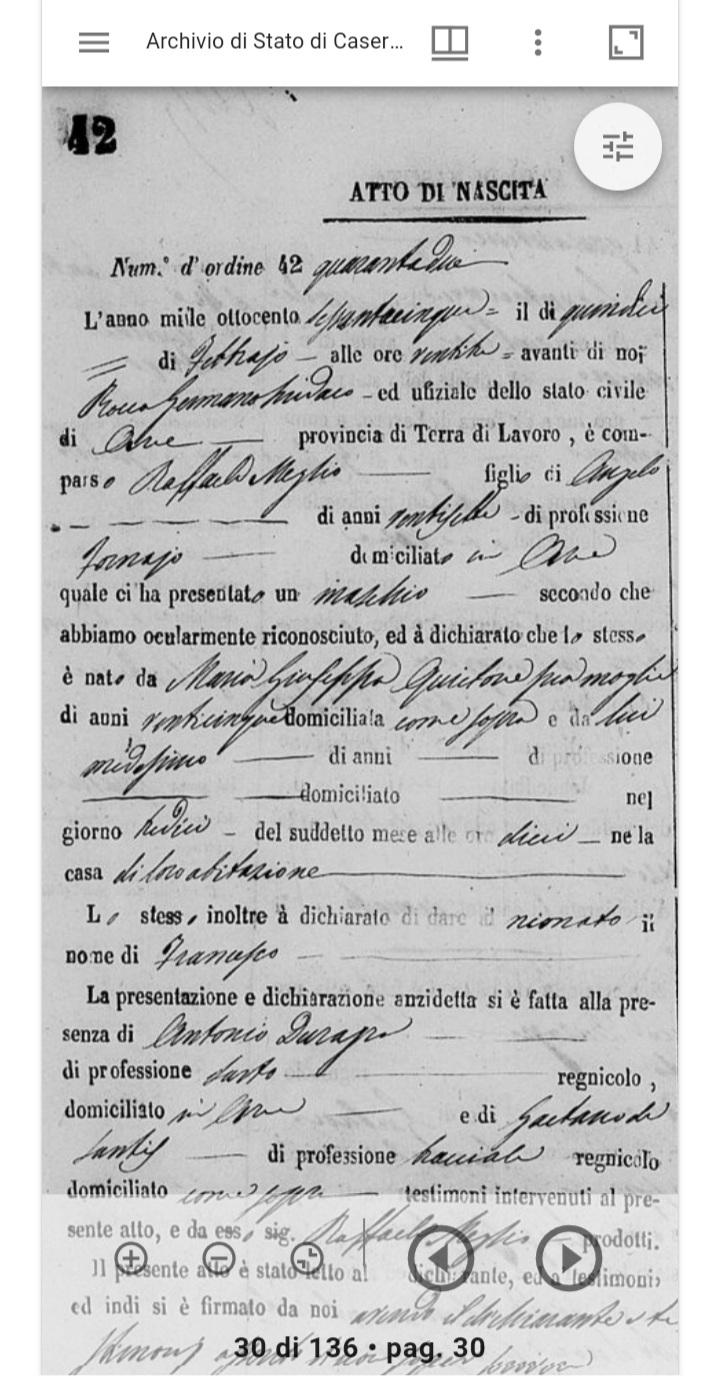 Archivio di Stato di Caser...
42
ATTO DI NASCITA
Num.º d'ordine 42 quarantadue
L'anno mille ottocento settantacinque = il di quindici
= di Febbrajo – alle ore ventitre = avanti di noi
Rocco Germano Sindaco – ed ufiziale dello stato civile
di provincia di Terra di Lavoro, è com-
parso Raffaele Meglio figlio di Angelo
di anni ventisette – di professione
Fornajo domiciliato in
quale ci ha presentato un maschio secondo che
abbiamo ocularmente riconosciuto, ed à dichiarato che lo stesso
è nato da Maria Giuseppa sua moglie
di anni venticinque domiciliata come sopra e da lui
medesimo di anni di professione
domiciliato nel
giorno tredici – del suddetto mese alle ore dieci – nella
casa di loro abitazione
Lo stesso inoltre à dichiarato di dare al nionato il
nome di Francesco
La presentazione e dichiarazione anzidetta si è fatta alla pre-
senza di Antonio
di professione Sarto regnicolo,
domiciliato in e di Gaetano de
Santis di professione regnicolo
domiciliato come sopra testimoni intervenuti al pre-
sente atto, e da esso sig. Raffaele Meglio – prodotti.
Il presente atto è stato letto al dichiarante, ed a testimoni,
ed indi si è firmato da noi avendo il dichiarante e te
30 di 136 • pag. 30